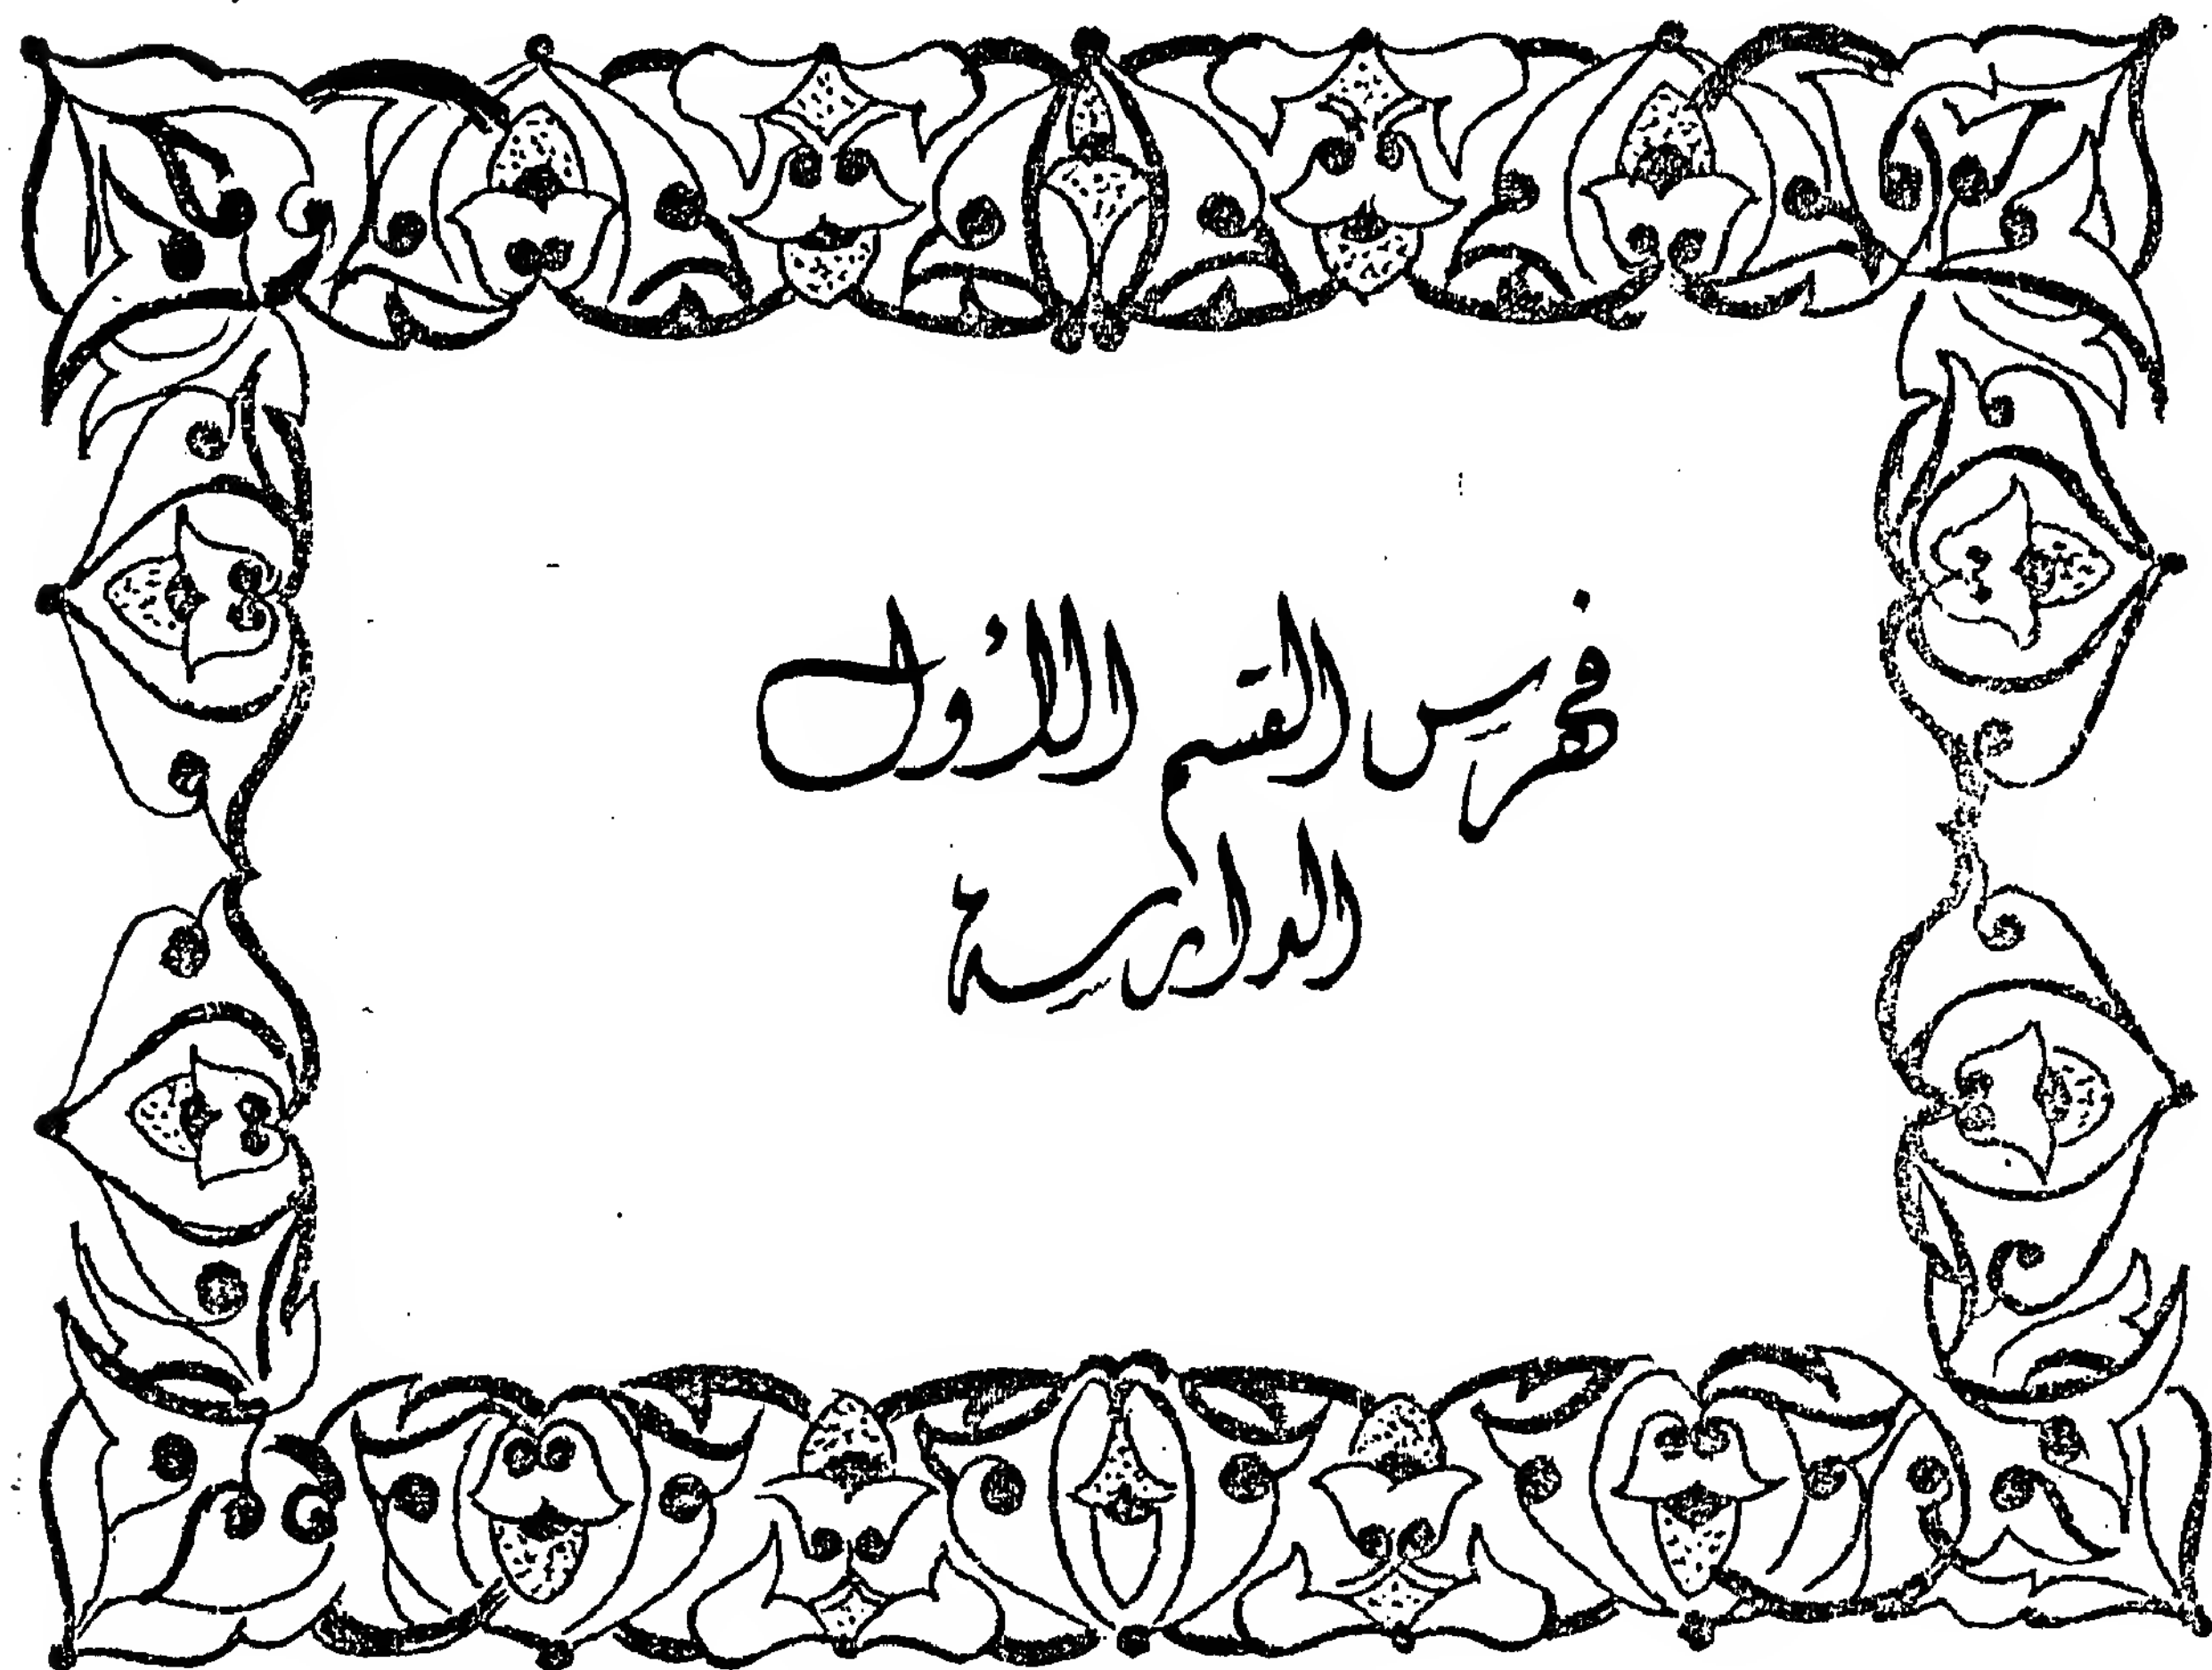 فهرس القسم الأول
الدارسة